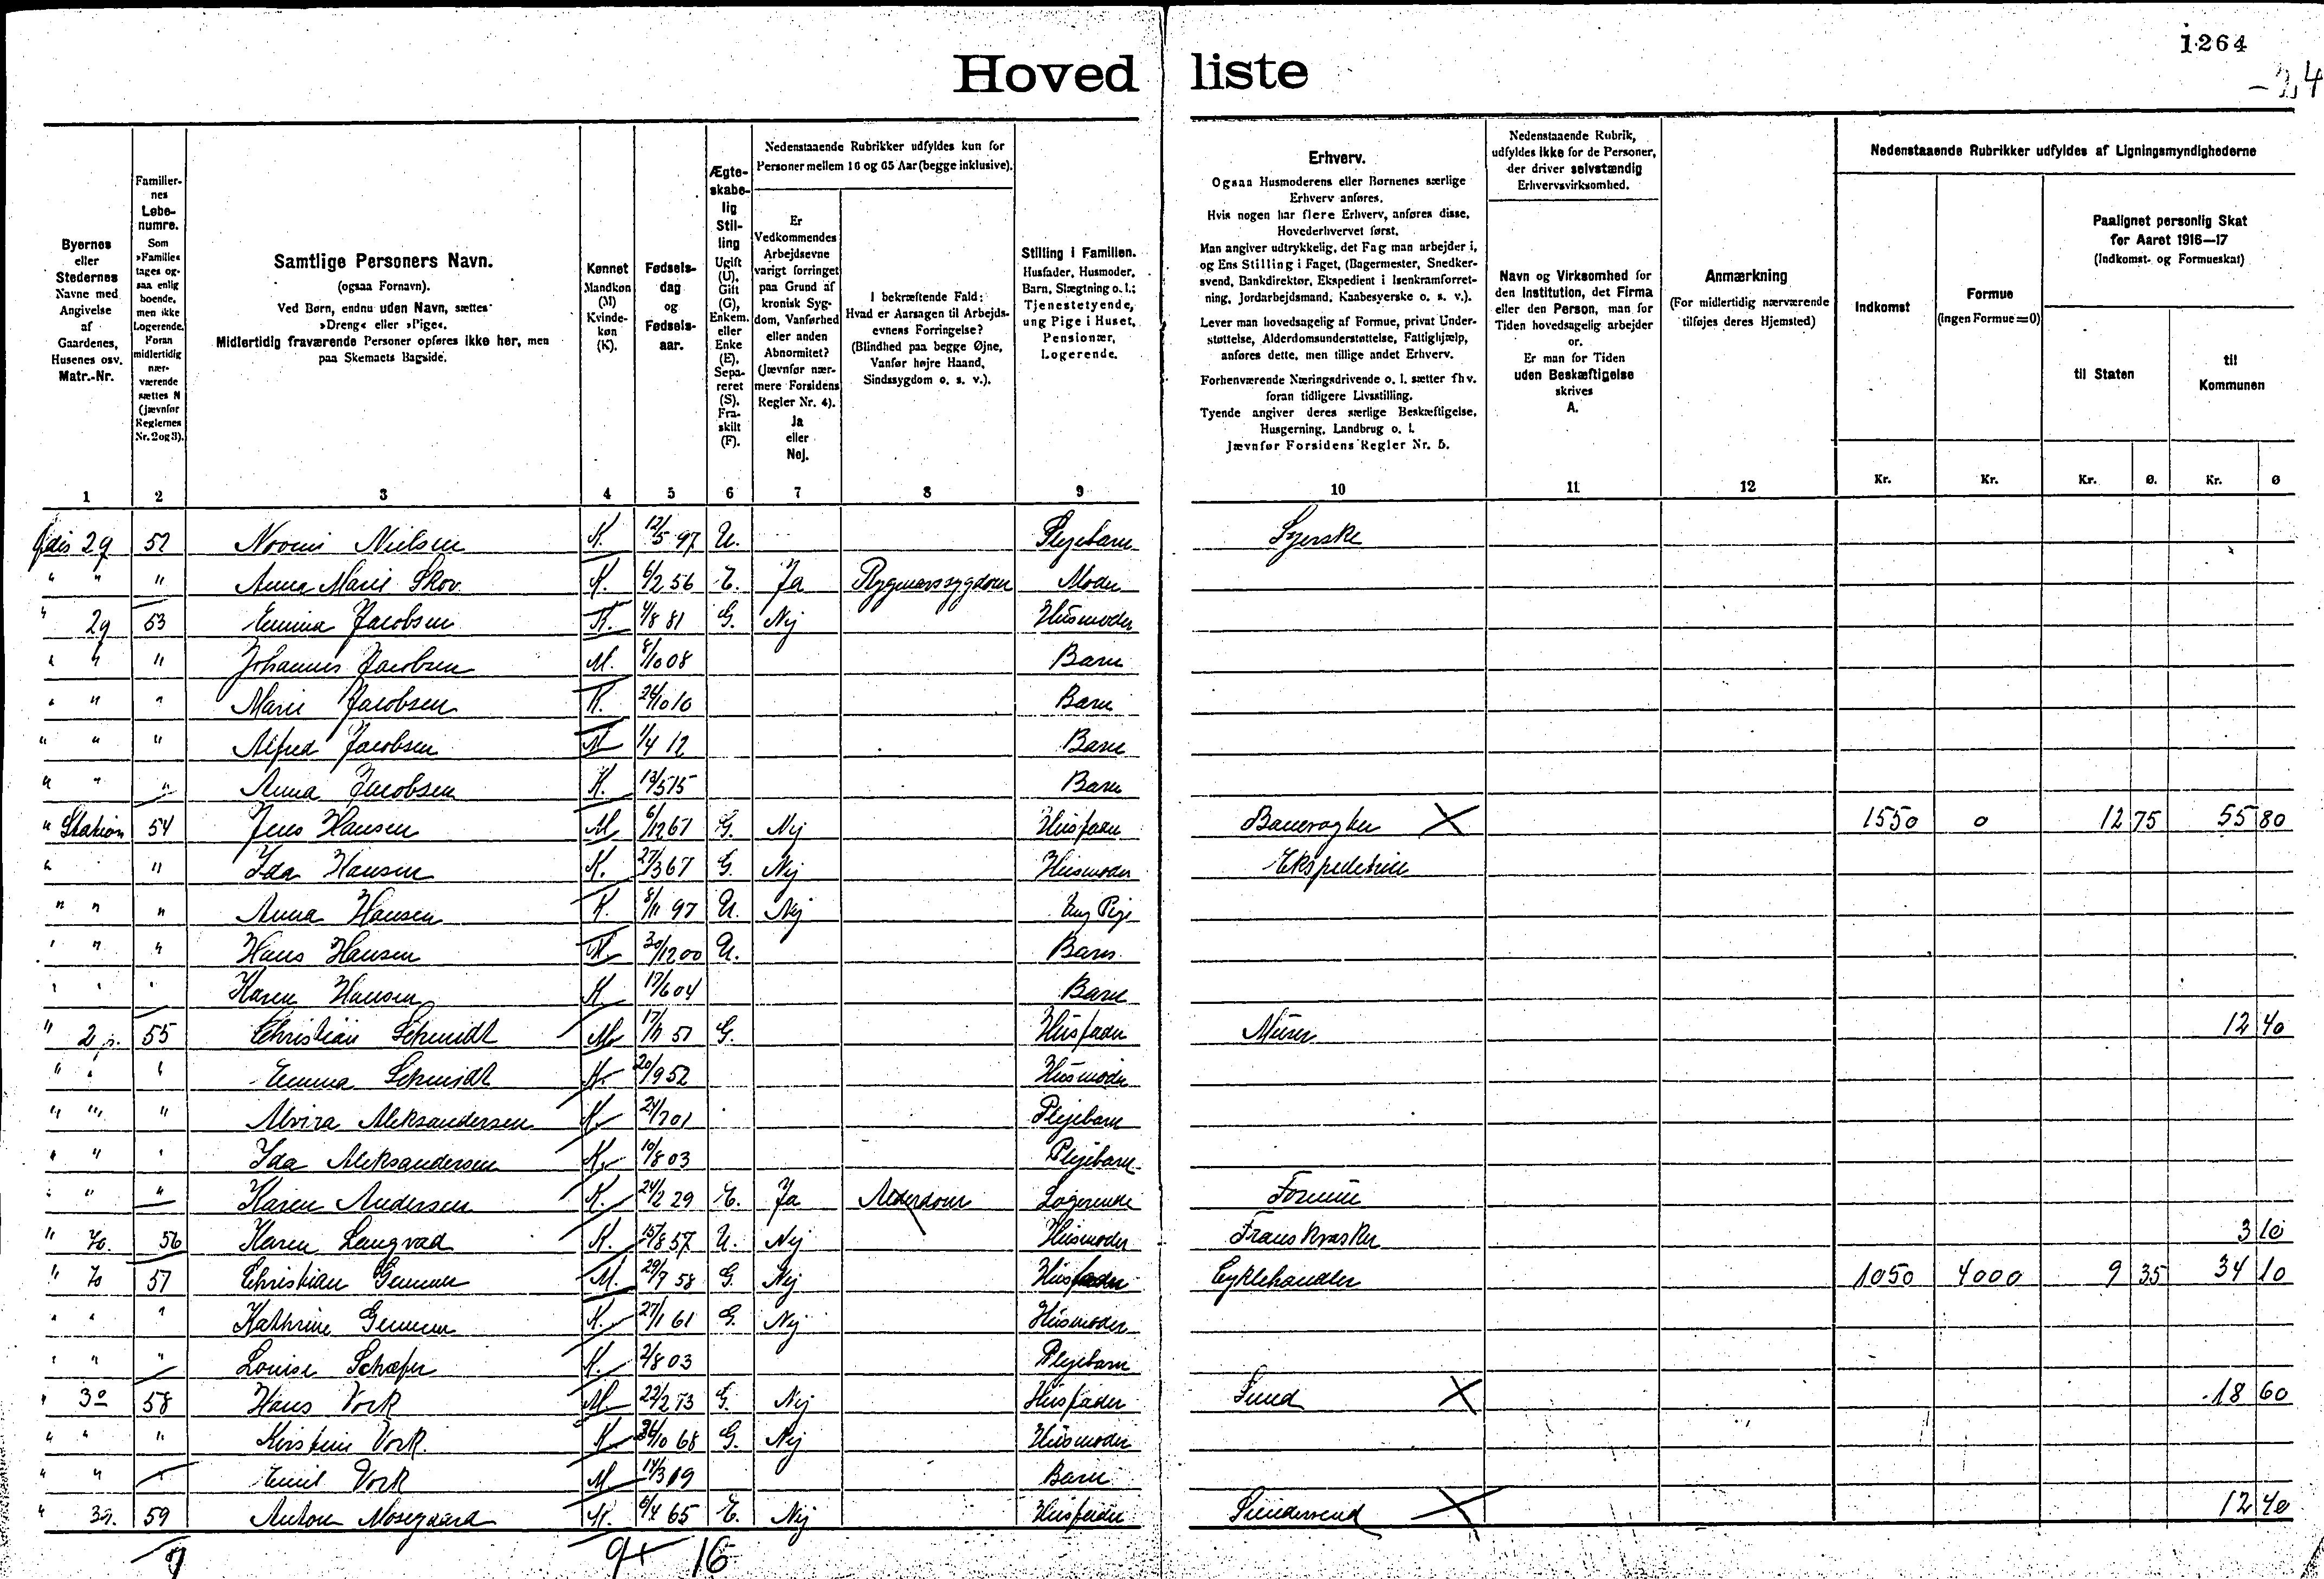 1264
-24
Hovedliste
Byernes eller Stedernes Navne med Angivelse af Gaardenes, Husenes osv. Matr.-Nr.
Familiernes Løbenumre. Som »Familie« tages ogsaa enlig boende, men ikke Logerende. Foran midlertidig nærværende sættes N (jævnfør Reglernes Nr. 2 og 3).
Samtlige Personers Navn. (ogsaa Fornavn). Ved Børn, endnu uden Navn, sættes »Dreng« eller »Pige«. Midlertidig fraværende Personer opføres ikke her, men paa Skemaets Bagside.
Kønnet Mandkøn (M) Kvindekøn (K).
Fødselsdag og Fødselsaar.
Ægteskabelig Stilling Ugift (U), Gift (G), Enkem. eller Enke (E), Separeret (S), Fraskilt (F).
Nedenstaaende Rubrikker udfyldes kun for Personer mellem 16 og 65 Aar (begge inklusive).
Er Vedkommendes Arbejdsevne varigt forringet paa Grund af kronisk Sygdom, Vanførhed eller anden Abnormitet? (Jævnfør nærmere Forsidens Regler Nr. 4). Ja eller Nej.
I bekræftende Fald: Hvad er Aarsagen til Arbejdsevnens Forringelse? (Blindhed paa begge Øjne, Vanfør højre Haand, Sindssygdom o. s. v.).
Stilling i Familien. Husfader, Husmoder, Barn, Slægtning o. l.; Tjenestetyende, ung Pige i Huset, Pensionær, Logerende.
Erhverv. Ogsaa Husmoderens eller Børnenes særlige Erhverv anføres. Hvis nogen har flere Erhverv, anføres disse, Hovederhvervet først. Man angiver udtrykkelig, det Fag man arbejder i, og Ens Stilling i Faget, (Bagermester, Snedkersvend, Bankdirektør, Ekspedient i Isenkramforretning, Jordarbejdsmand, Kaabesyerske o. s. v.). Lever man hovedsagelig af Formue, privat Understøttelse, Alderdomsunderstøttelse, Fattighjælp, anføres dette, men tillige andet Erhverv. Forhenværende Næringsdrivende o. l. sætter fhv. foran tidligere Livsstilling. Tyende angiver deres særlige Beskæftigelse, Husgerning, Landbrug o. l. Jævnfør Forsidens Regler Nr. 5.
Nedenstaaende Rubrik, udfyldes ikke for de Personer, der driver selvstændig Erhvervsvirksomhed.
Navn og Virksomhed for den Institution, det Firma eller den Person, man for Tiden hovedsagelig arbejder or. Er man for Tiden uden Beskæftigelse skrives A.
Anmærkning (For midlertidig nærværende tilføjes deres Hjemsted)
Nedenstaaende Rubrikker udfyldes af Ligningsmyndighederne
Indkomst
Formue (ingen Formue = 0)
Paalignet personlig Skat for Aaret 1916—17 (Indkomst- og Formueskat)
til Staten
til Kommunen
1 2 3 4 5 6 7 8 9 10 11 12 Kr. Kr. Kr. Ø. Kr. Ø
2g 52 Noomi Nielsen K. 12/5 97 U. Plejebarn Syerske
" " " Anna Marie Skov K. 6/2 56 E. Ja Rygmarvssygdom Moder
" 2g 53 Emma Jacobsen K. 4/8 81 G. Nej Husmoder
" " " Johannes Jacobsen M. 8/10 08 Barn
" " " Marie Jacobsen K. 26/10 10 Barn
" " " Alfred Jacobsen M 1/4 12 Barn
" " " Anna Jacobsen K. 13/5 15 Barn
" Station 54 Jens Hansen M 6/12 67 G. Nej Husfader Banevogter X 1550 0 12 75 55 80
" " Ida Hansen K. 27/3 67 G. Nej Husmoder Ekspeditrice
" " " Anna Hansen K. 8/11 97 U. Nej Ung Pige
" " " Hans Hansen M 30/12 00 U. Barn
" " " Karen Hansen K 17/6 04 Barn
" 2p. 55 Christian Schmidt M 17/11 51 G. Husfader Murer 12 40
" " " Emma Schmidt K. 20/9 52 Husmoder
" " " Alvira Aleksandersen K. 24/7 01 Plejebarn
" " " Ida Aleksandersen K. 10/8 03 Plejebarn
" " " Karen Andersen K. 24/2 29 E. Ja Alderdom Logerende Formue
" 56 Karen Langvad K. 15/8 57 U. Nej Husmoder 3 10
" 57 Christian Gemmer M. 29/7 58 G. Nej Husfader Cyklehandler 1050 4000 9 35 34 10
" " " Kathrine Gemmer K. 27/1 61 G. Nej Husmoder
" " " Louise Schæfer K. 2/8 03 Plejebarn
" 3o 58 Hans Vork M 22/2 73 G. Nej Husfader X 18 60
" " " Kirstine Vork K 26/10 68 G. Nej Husmoder
" " " Emil Vork M. 14/3 09 Barn
" 3g. 59 Anton Mosegaard M. 6/4 65 E. Nej Husfader X 12 40
7 9+ 16